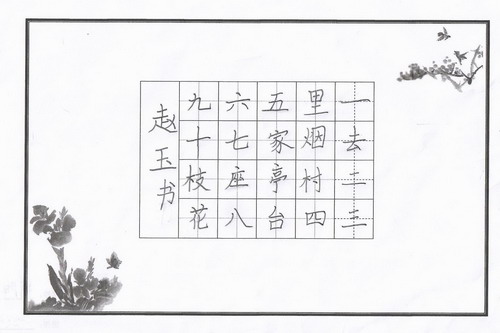 一去二三
里烟村四
五家亭台
六七座八
九十枝花
赵玉书